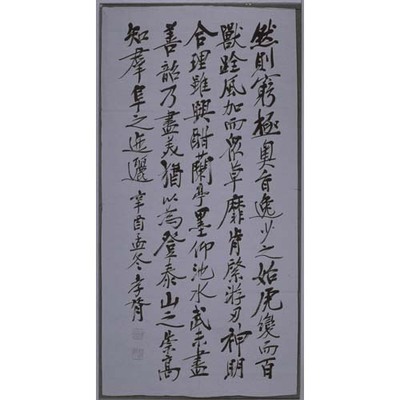 然則窮極奧旨逸少之始虎變而百
獸跧風加而眾草靡肯綮游刃神明
合理雖興酣蘭亭墨仰池水武未盡
善韶乃盡美猶以為登泰山之崇高
知羣阜之迤邐 辛酉孟冬